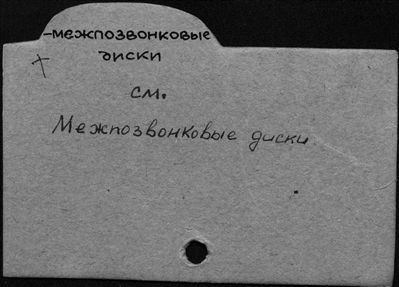 -межпозвонковые
диски
см.
Межпозвонковые диски